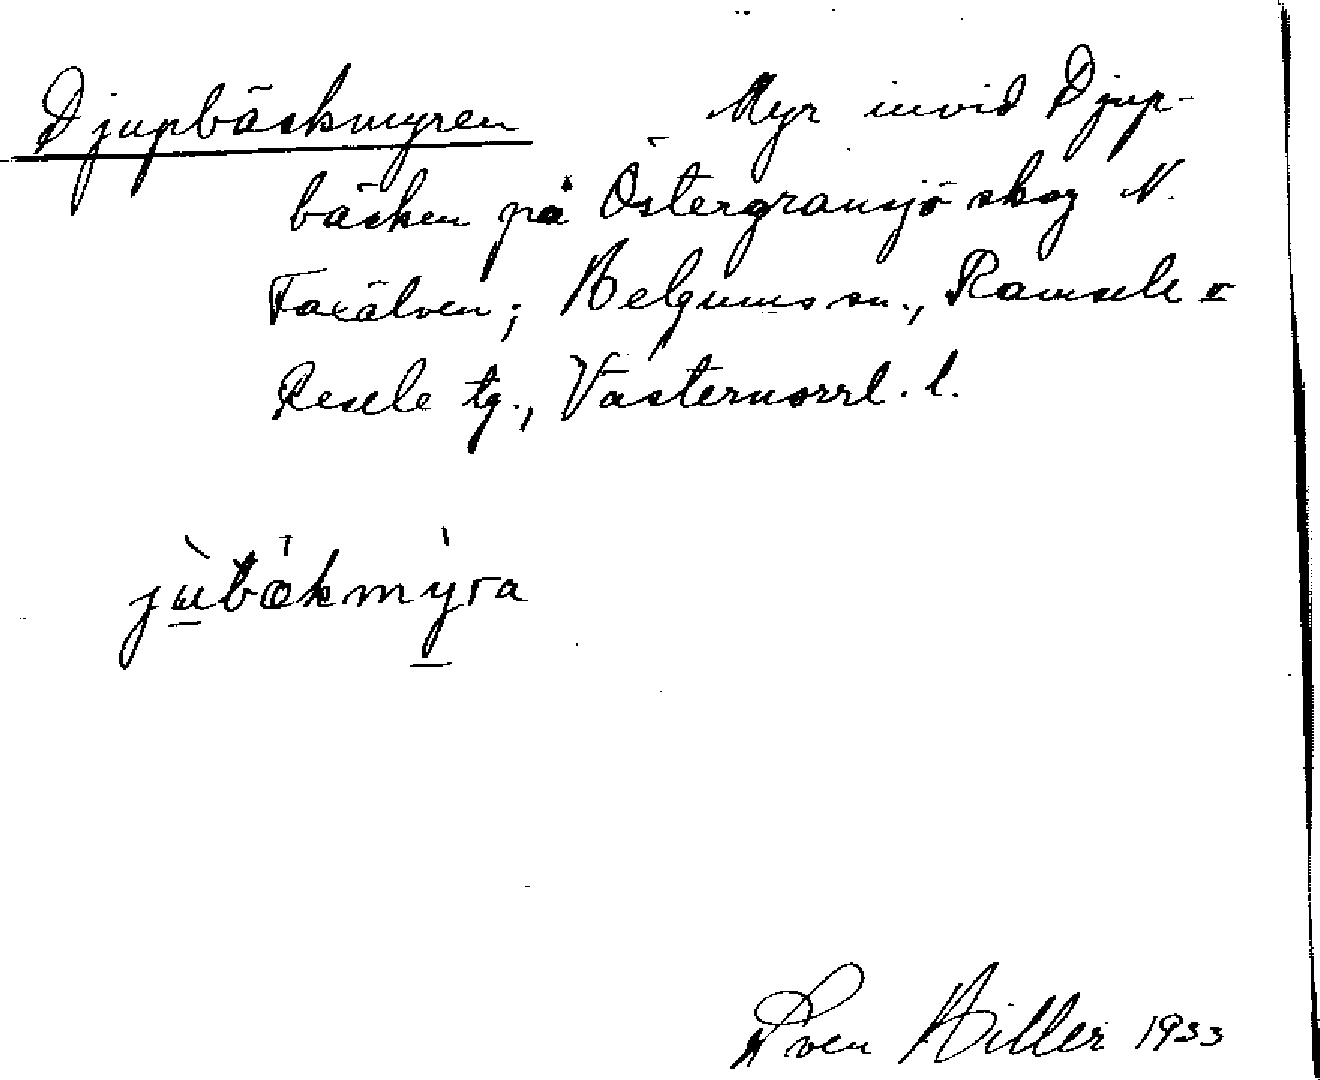 Djupbäckmyren Myr invid Djup-
bäcken på Östergransjö skog N.
Faxälven; Helgums sn., Ramsele o
Resele tg., Västernorrl. l.
jùbækmỳra
Sven Hiller 1933